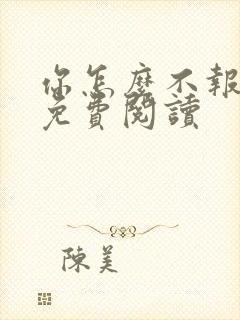 你怎麼不報
免費閱讀
陳美